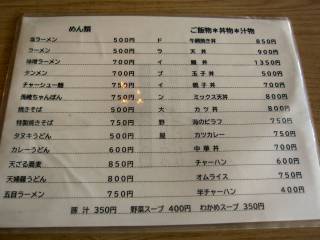 めん類 ご飯物*丼物*汁物
塩ラーメン 500円 ド 牛網焼き丼 850円
ラーメン 500円 ラ 天丼 900円
味噌ラーメン 700円 イ 鰻丼 1350円
タンメン 700円 ブ 玉子丼 500円
チャーシュー麺 750円 イ 親子丼 700円
長崎ちゃんぽん 750円 ン ミックス天丼 800円
焼きそば 500円 大 カツ丼 800円
特製焼きそば 750円 野 海のピラフ 750円
タヌキうどん 500円 屋 カツカレー 750円
カレーうどん 600円 中華丼 700円
天ざる蕎麦 850円 チャーハン 600円
天婦羅うどん 800円 オムライス 750円
五目ラーメン 750円 半チャーハン 400円
豚汁 350円 野菜スープ 400円 わかめスープ 350円